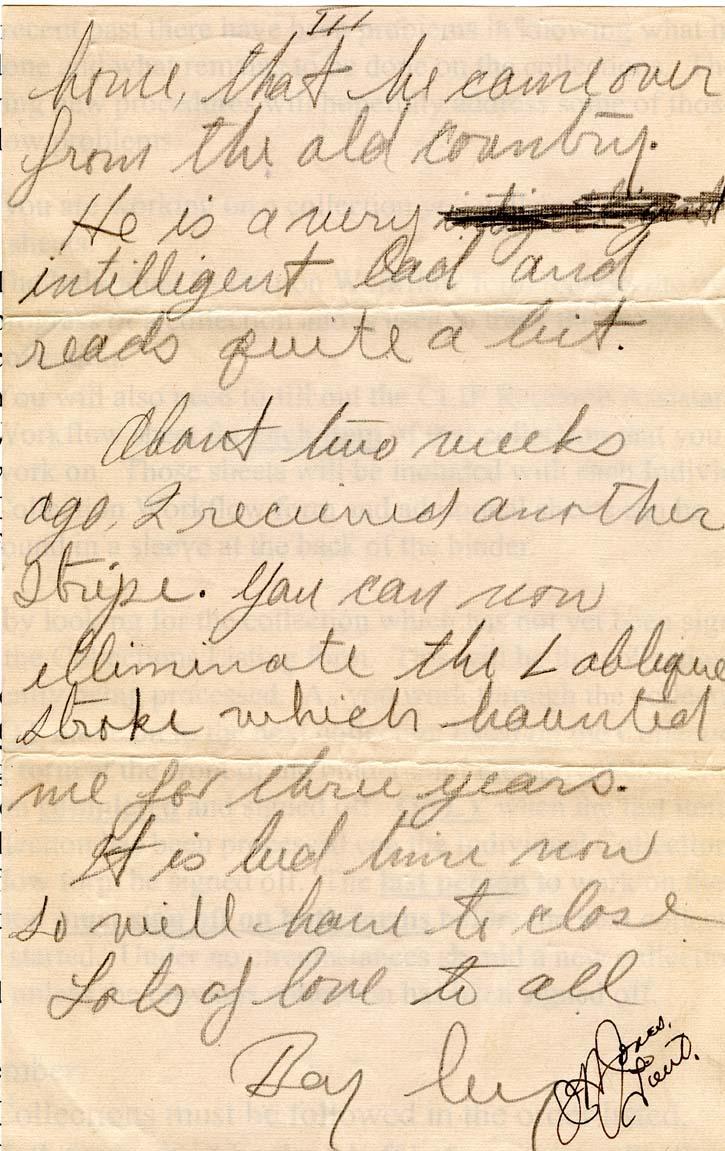 III
home, that he came over
from the old country.
He is a very
intilligent lad and
reads quite a bit.
About two weeks
ago, I recieved another
stripe. You can now
elliminate the L ablique
stroke which haunted
me for three years.
It is bed time now
so will have to close
Lots of love to all
Jones,
Lieut.